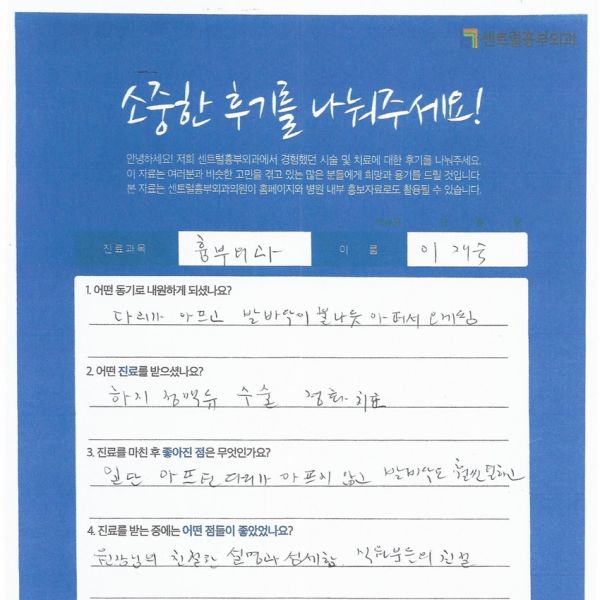 센트럴흉부외과
소중한 후기를 나눠주세요!
안녕하세요! 저희 센트럴흉부외과에서 경험했던 시술 및 치료에 대한 후기를 나눠주세요.
이 자료는 여러분과 비슷한 고민을 겪고 있는 많은 분들에게 희망과 용기를 드릴 것입니다.
본 자료는 센트럴흉부외과의원이 홈페이지와 병원 내부 홍보자료로도 활용될 수 있습니다.
진료과목 흉부외과 이 름 이
1. 어떤 동기로 내원하게 되셨나요?
다리가 아프고 발바닥이 불나듯 아파서 오게됨
2. 어떤 진료를 받으셨나요?
하지 정맥류 수술 경화 치료
3. 진료를 마친 후 좋아진 점은 무엇인가요?
일단 아프던 다리가 아프지 않고 발바닥도 훨씬 덜하고
4. 진료를 받는 중에는 어떤 점들이 좋았었나요?
원장님의 친절한 설명과 섬세함. 직원분들의 친절